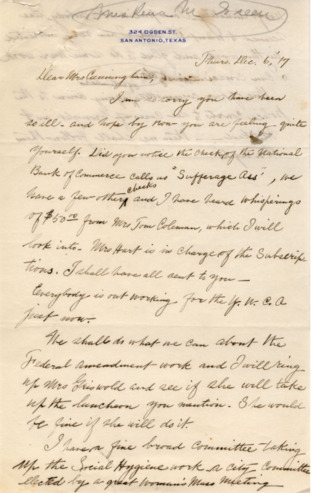 324 OGDEN ST.
SAN ANTONIO, TEXAS
Thurs. Dec. 6, '17
Dear Mrs Cunningham;
I am sorry you have been
so ill - and hope by now you are feeling quite
yourself. Did you notice the check of the National
Bank of Commerce calls us "Sufferage Ass", we
have a few other checks and I have heard whisperings
of $50.00 from Mrs Tom Coleman, which I will
look into. Mrs Hart is in charge of the Subscrip
tions. I shall have all sent to you -
Everybody is out working for the Y. W. C. A
just now.
We shall do what we can about the
Federal amendment work and I will ring
up Mrs Griswold and see if she will take
up the luncheon you mention. She would
be fine if she will do it.
I have a fine broad committee taking
up the Social Hygiene work a city committee
elected by a great Woman's Mass Meeting